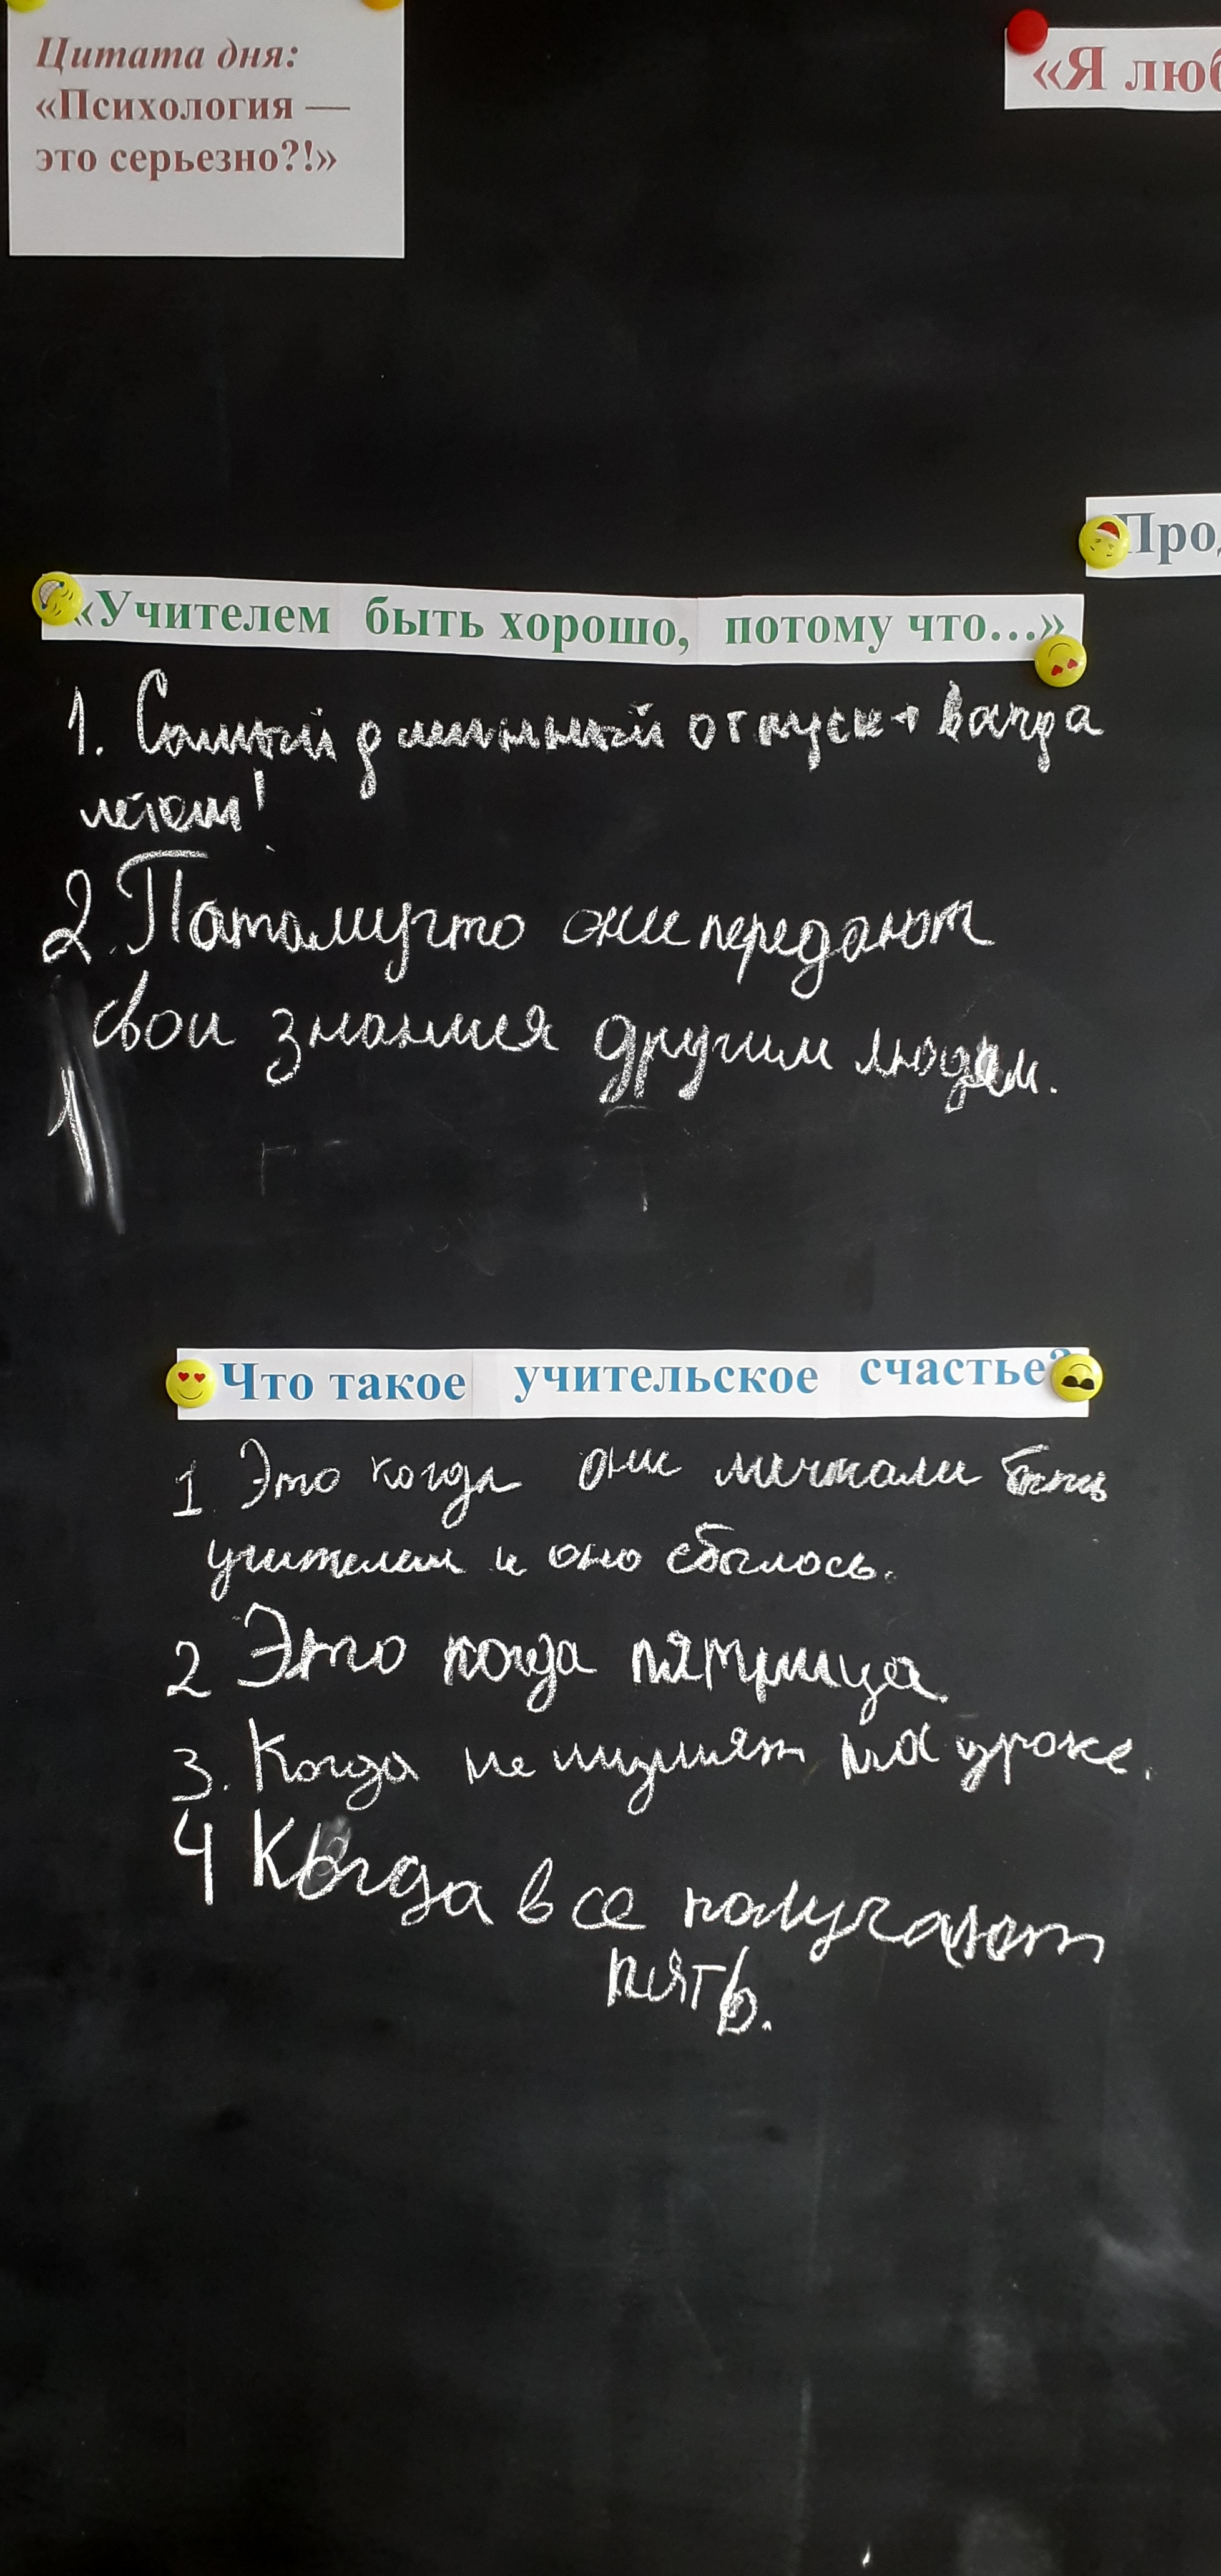 Цитата дня:
«Психология —
это серьезно?!»
«Я люб
Прод
«Учителем быть хорошо, потому что...»
1. Самый длинный отпуск + всегда
летом!
2. Патамучто они передают
свои знания другим людям.
Что такое учительское счастье?
1 Это когда они мечтали быть
учителем и оно сбылось.
2 Это когда пятница.
3. Когда не шумят на уроке.
4 Когда все получают
пять.